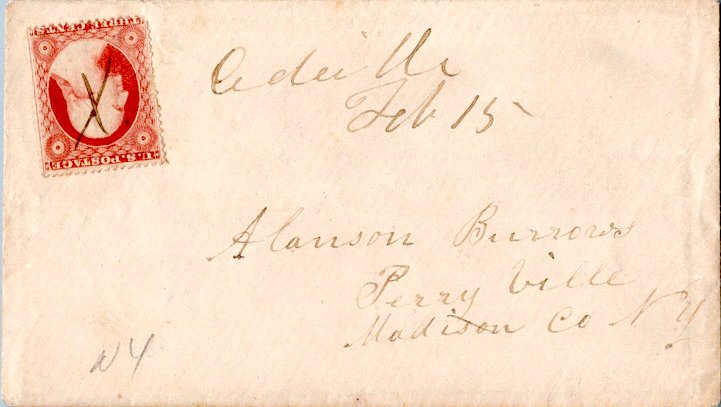 THREE CENTS
U.S. POSTAGE
Feb 15
Alanson Burrows
Perry Ville
Madison Co NY
NY